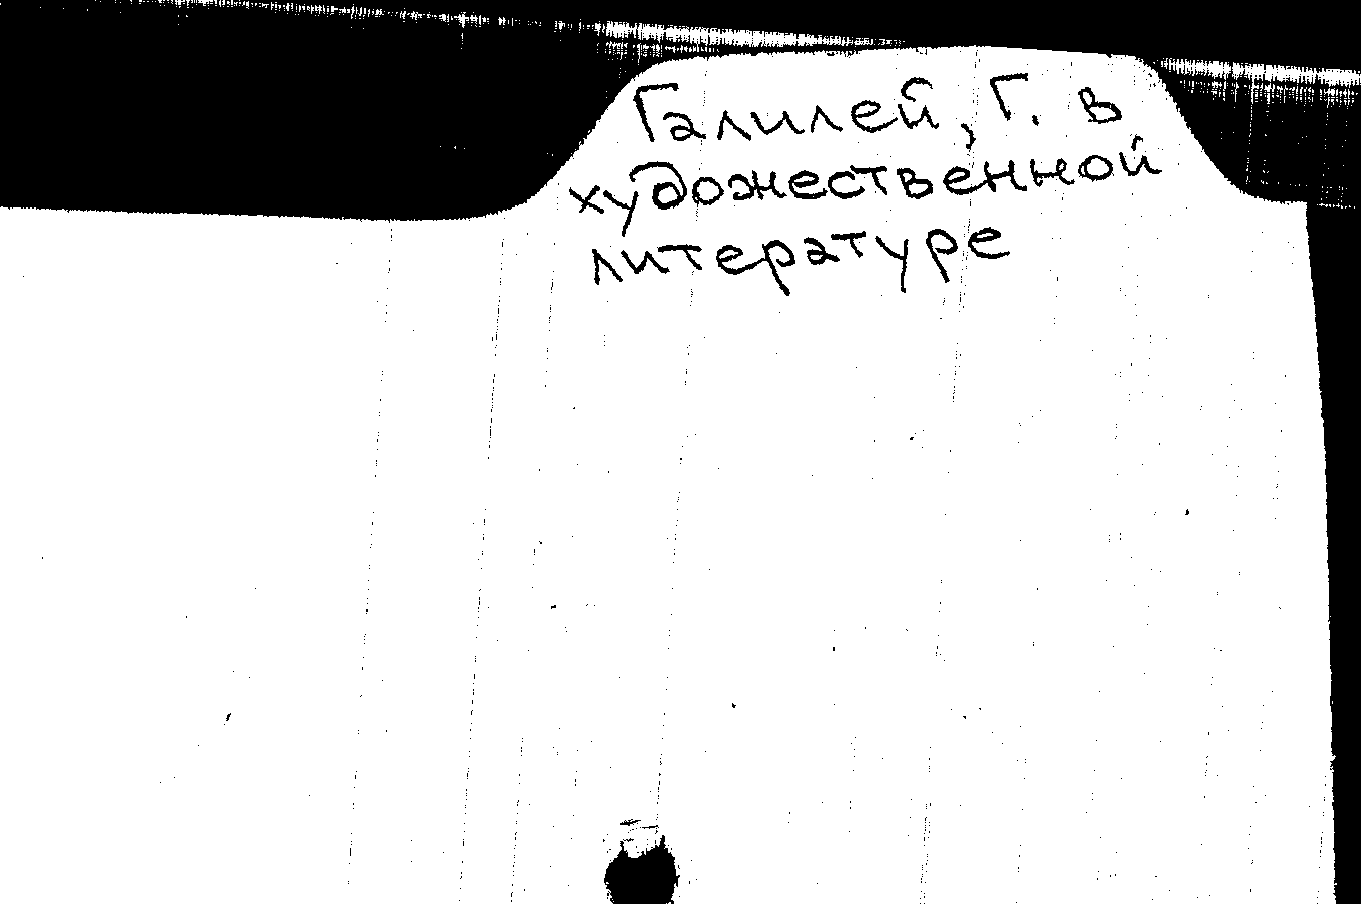 Галилей, Г. в
художественной
литературе